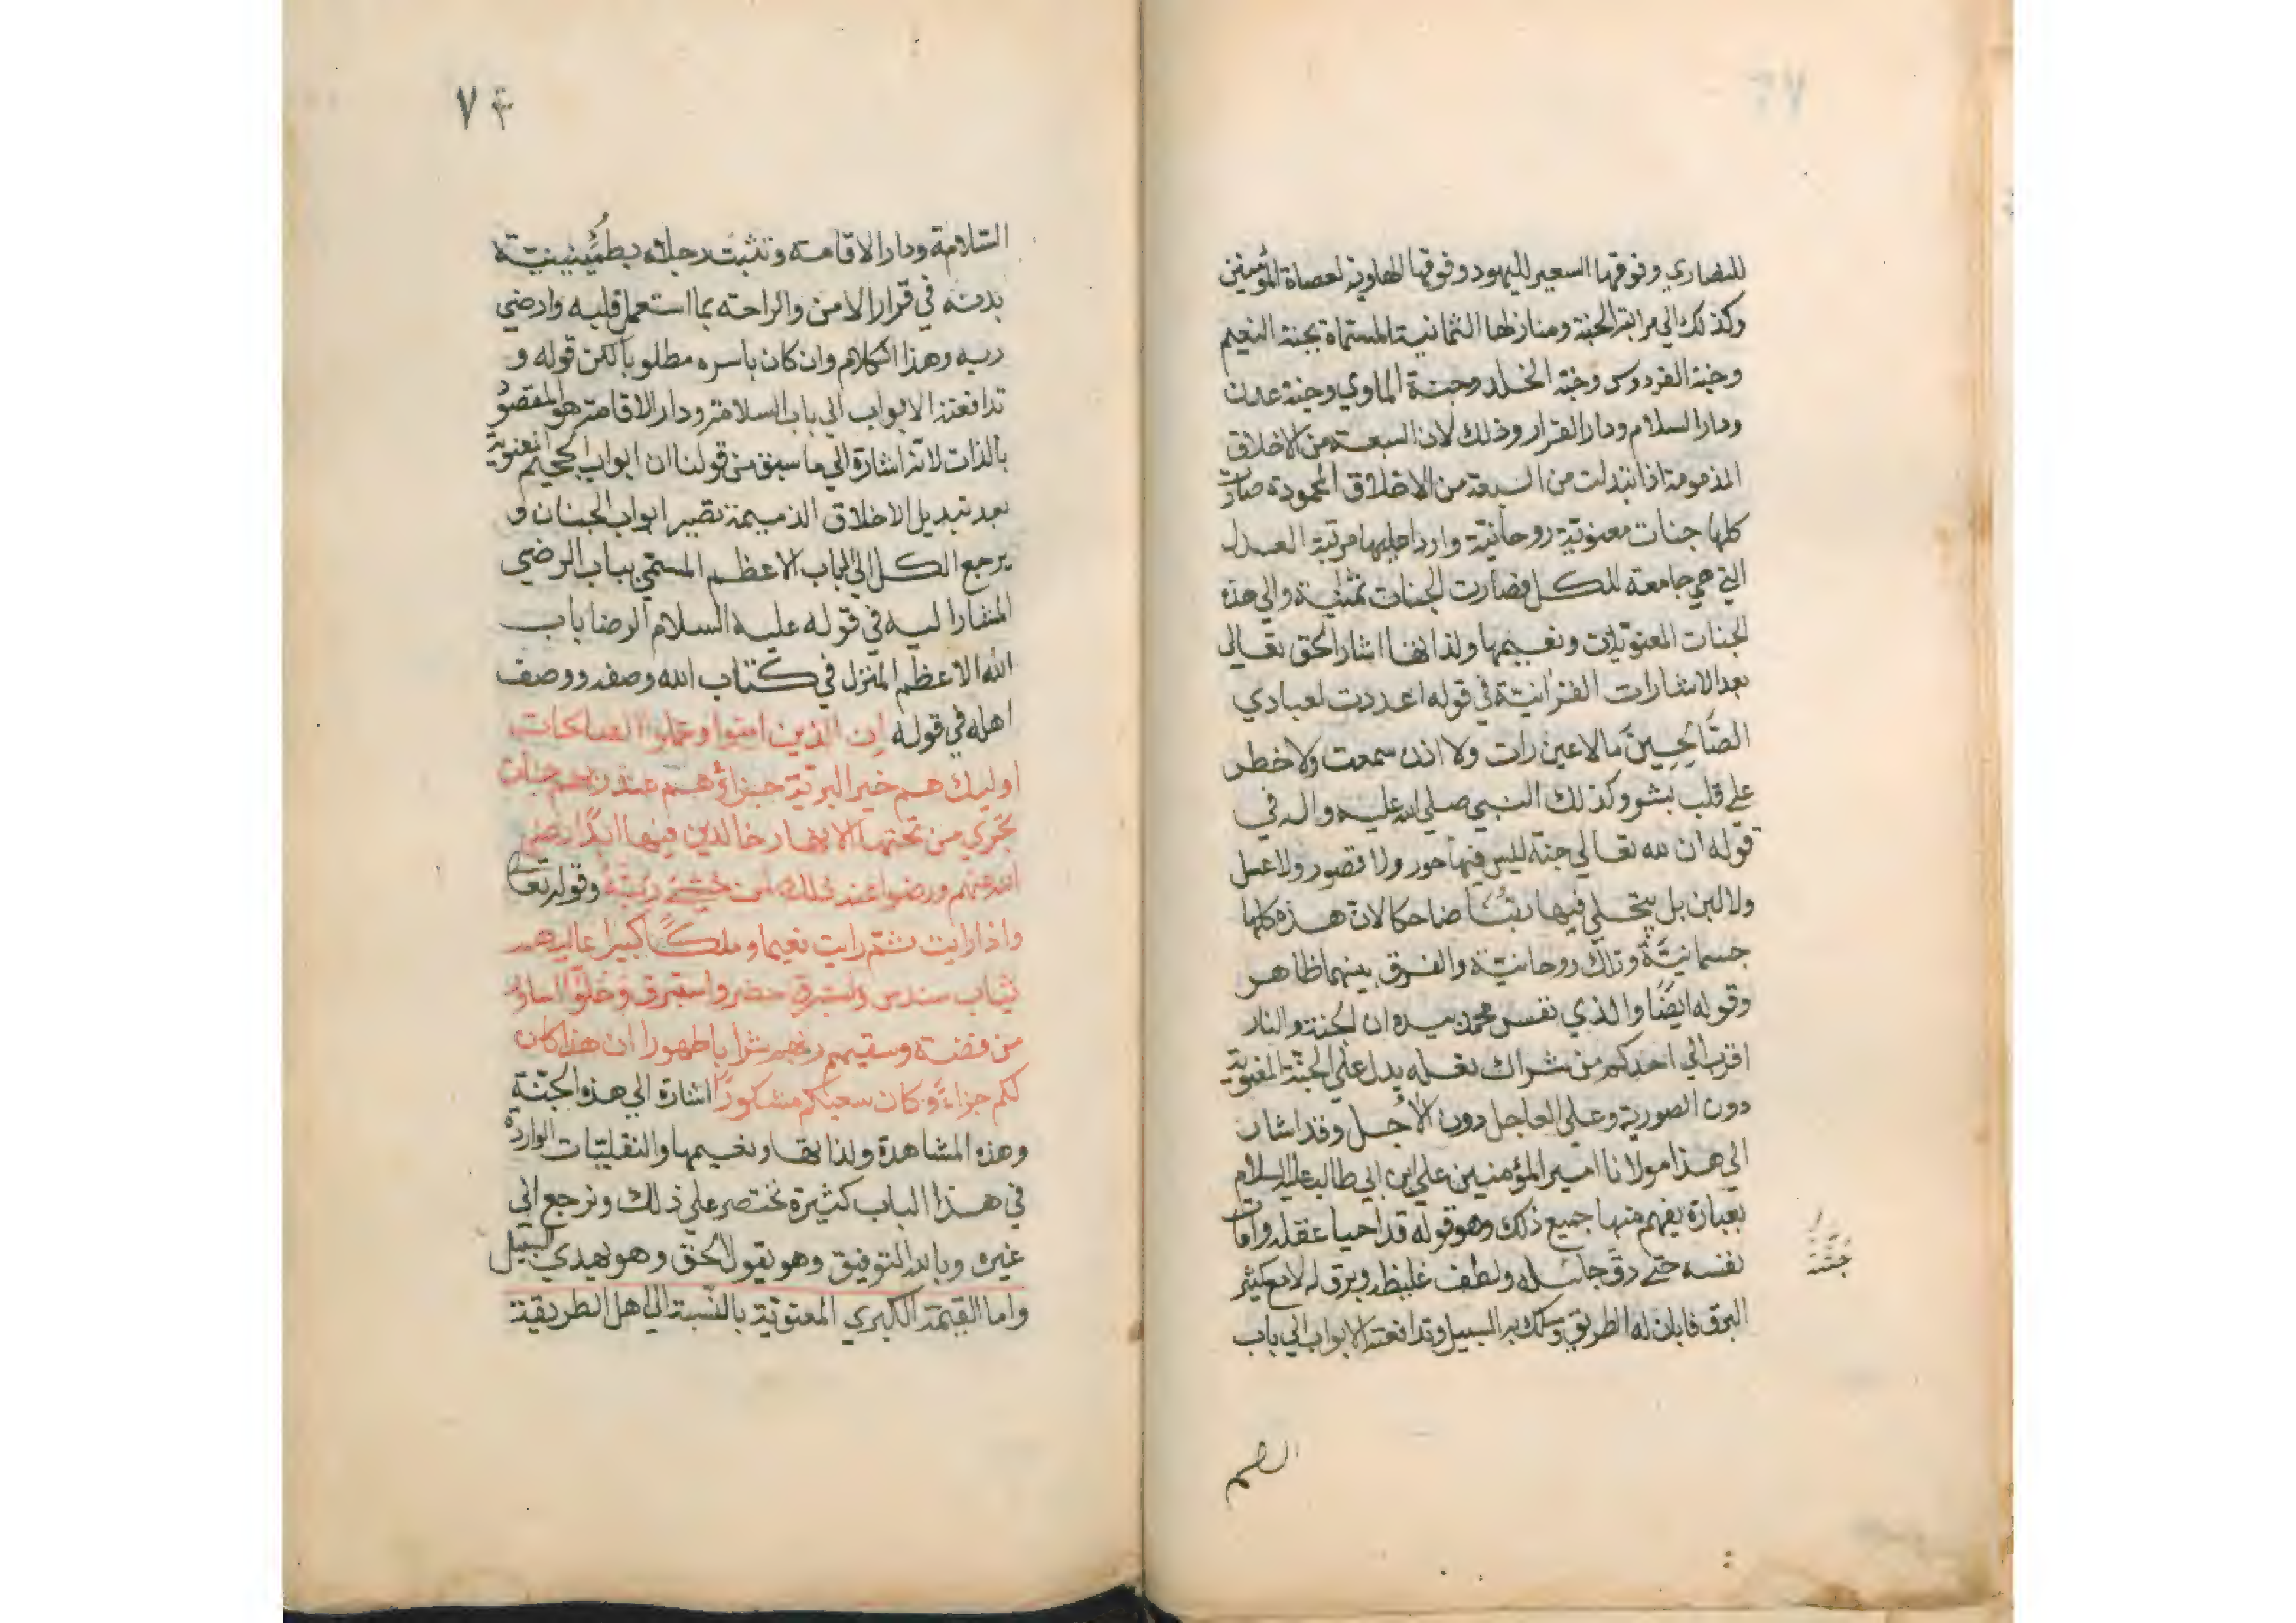 للنصاري وفوقها السعير لليهود وفوقها الهاوية لعصاة المؤمنين
وكذلك الي مراتب الجنة ومنازلها الثمانية المسماة بجنة النعيم
وجنة الفردوس وجنة الخلد وجنة الماوي وجنة عدن
ودار السلام ودار القرار وذلك لان السبعة من الاخلاق
المذمومة اذا تبدلت من السبعة من الاخلاق المحمودة صارت
كلها جنات معنوية روحانية وازداد عليها مرتبة العدل
التي هي جامعة للكل فصارت الجنات ثمانية والي هذه
الجنات المعنويات ونعيمها ولذاتها اشار الحق تعالي
بعد الاشارات القرانية في قوله اعددت لعبادي
الصَّالِحِينَ ما لا عين رات ولا اذن سمعت ولا خطر
علي قلب بشر وكذلك النبي صلي الله عليه واله في
قوله ان لله تعالي جنة ليس فيها حور ولا قصور ولا عسل
ولا لبن بل يتجلي فيها ربُّنا ضاحكا لان هذه كلها
جسمانيّة وتلك روحانيّة والفرق بينهما ظاهر
وقوله ايضًا والذي نفس محمد بيده ان الجنة والنار
اقرب الي احدكم من شراك نعله يدل علي الجنّة المعنوية
دون الصورية وعلي العاجل دون الاجل وقد اشار
الي هذا مولانا امير المؤمنين علي ابن ابي طالب عليه السلام
بعبارة يفهم منها جميع ذلك وهو قوله قد احيا عقله وامات
نفسه حتي دقّ جليله ولطف غليظه وبرق له لامع كثير
البرق فابان له الطريق وسلك به السبيل وتدافعته الابواب الي باب
جنّته
٧٤
السّلامة ودار الاقامة وتثبت رجلاه بطُمَئنينيّة
بدنه في قرار الامن والراحة بما استعمل قلبه وارضي
ربه وهذا الكلام وان كان باسره مطلوبا لكن قوله و
تدافعته الابواب الي باب السلامة ودار الاقامة هو المقصود
بالذات لانه اشارة الي ما سبق من قولنا ان ابواب الجحيم المعنوية
بعد تبديل الاخلاق الذميمة تصير ابواب الجنان و
يرجع الكل الي الباب الاعظم المسمّي بباب الرضي
المشار اليه في قوله عليه السلام الرضا باب
الله الاعظم المنزل في كتاب الله وصفه ووصف
اهله في قوله ان الذين امنوا وعملوا الصالحات
اوليك هم خير البريّة جزاؤهم عند ربهم جنات
تجري من تحتها الانهار خالدين فيها ابدًا رضي
الله عنهم ورضوا عنه ذلك لمن خشي ربّه وقوله تعالي
واذا رايت ثمّ رايت نعيما وملكًا كبيرا عاليهم
ثياب سندس واستبرق خضر واستبرق وحلّوا اساور
من فضة وسقيهم ربهم شرابا طهورا ان هذا كان
لكم جزاءً وكان سعيكم مشكورًا اشارة الي هذه الجنّة
وهذه المشاهدة ولذاتها ونعيمها والنقليّات الواردة
في هذا الباب كثيرة نختصر علي ذلك ونرجع الي
غيره وبالله التوفيق وهو يقول الحق وهو يهدي السبيل
واما القيمة الكبري المعنويّة بالنّسبة الي اهل الطريقة